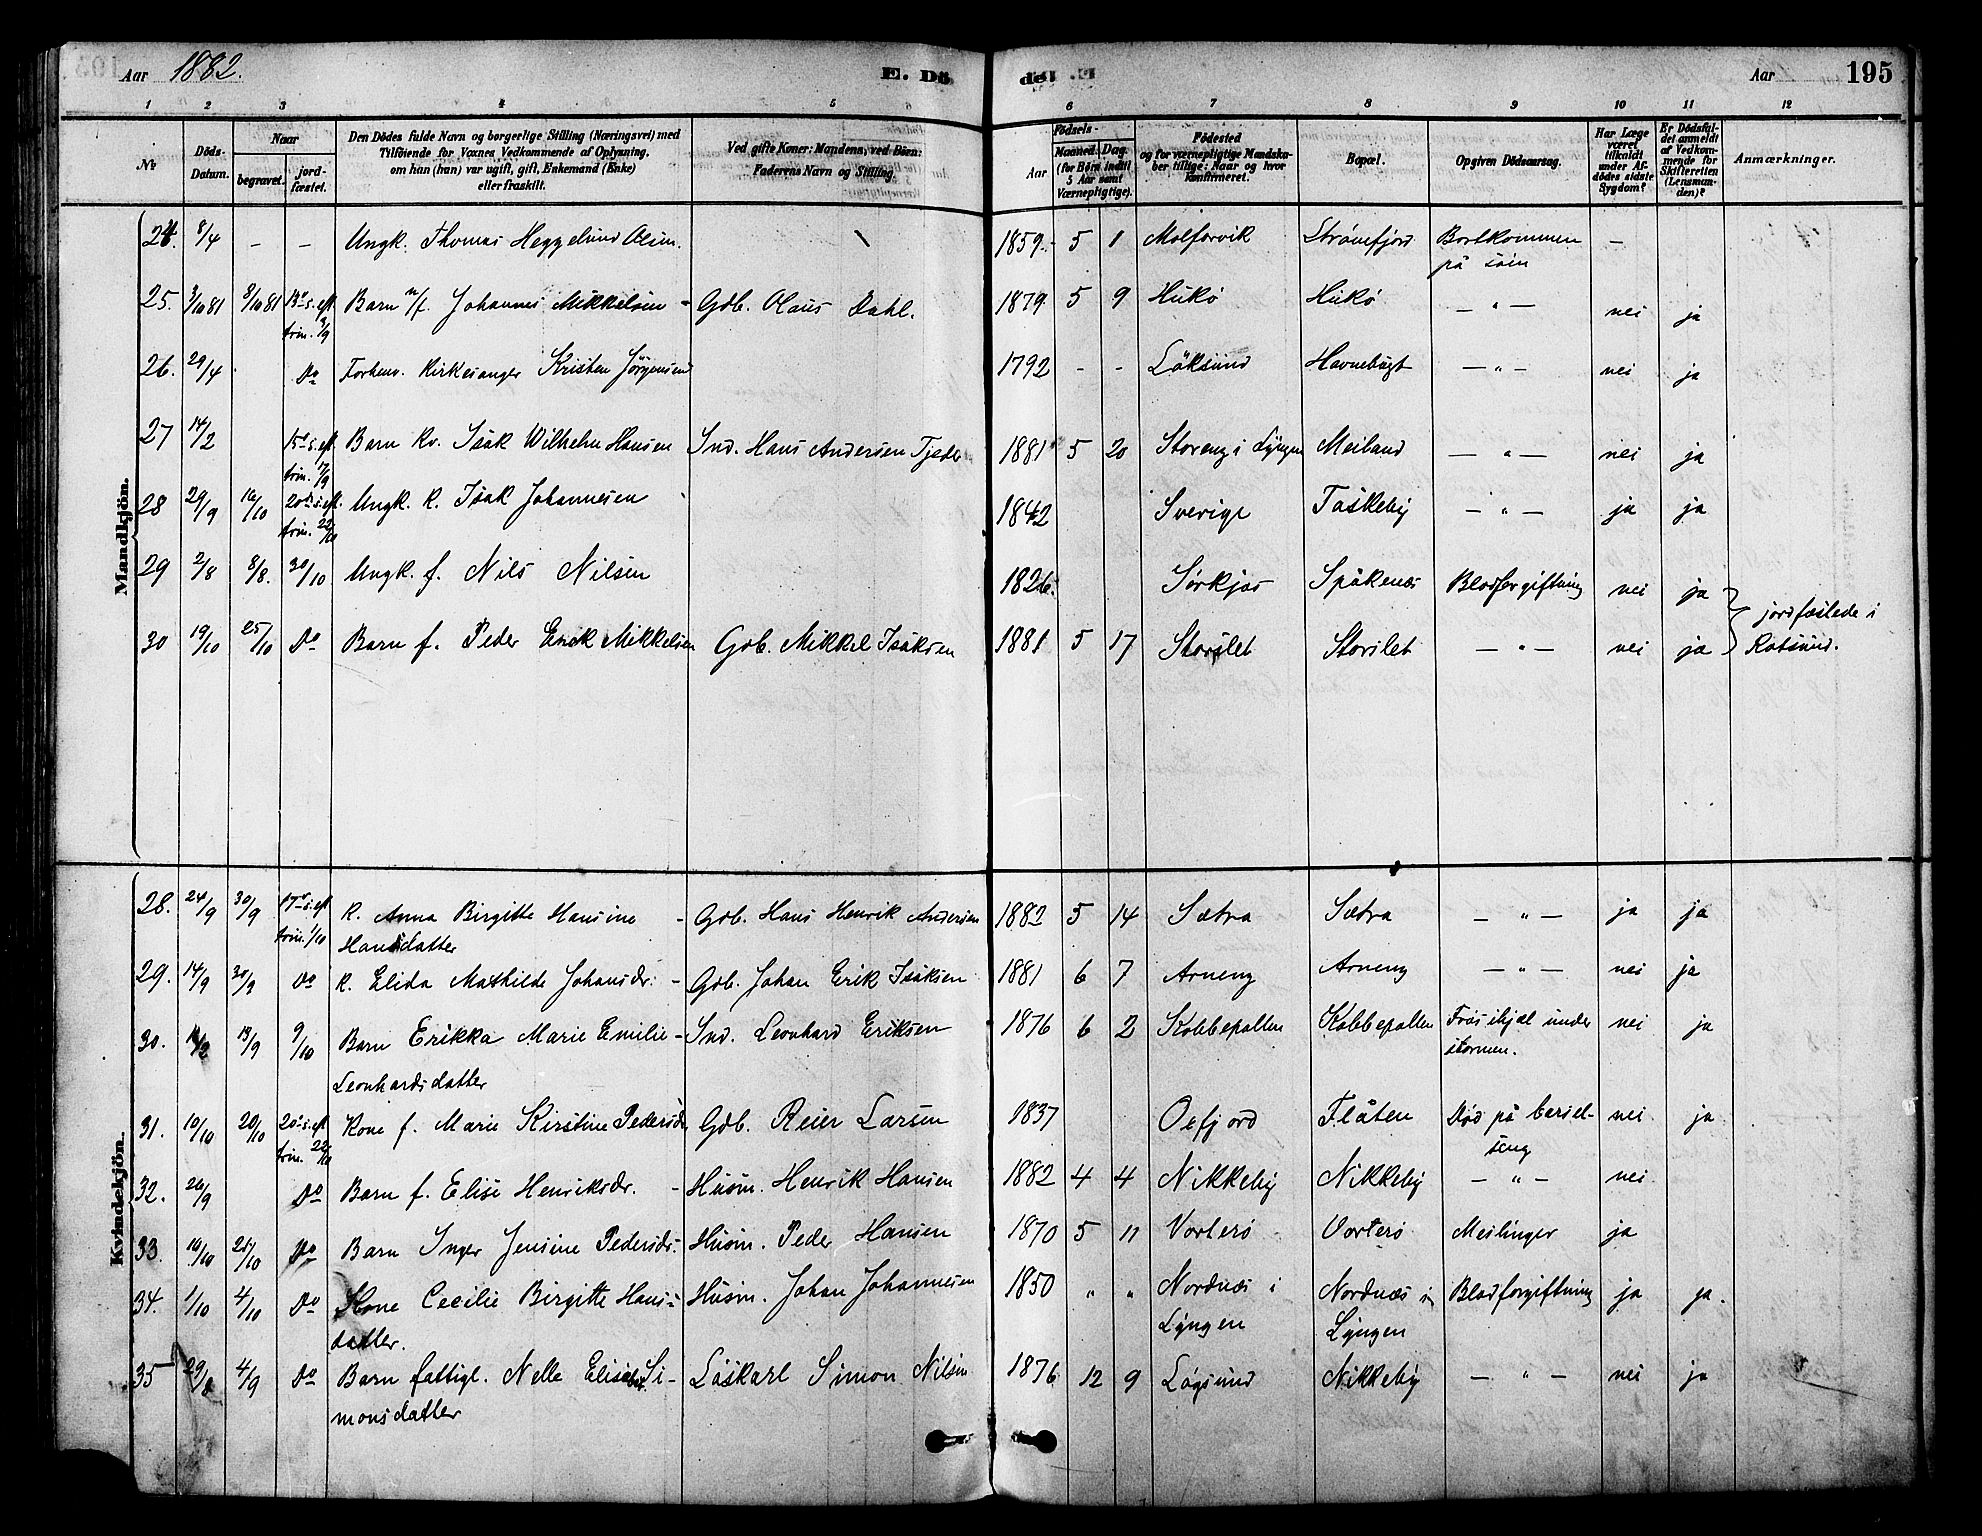 Aar 1882. E. Döde. Aar 195
1 2 3 4 5 6 7 8 9 10 11 12
No
Döds-Datum.
Naar
begravet. jordfæstet.
Den Dödes fulde Navn og borgerlige Stilling (Næringsvei) med
Tilföiende for Voxnes Vedkommende af Oplysning,
om han (hun) var ugift, gift, Enkemand (Enke)
eller fraskilt.
Ved gifte Koner: Mandens, ved Börn:
Faderens Navn og Stilling.
Födsels-
Aar Maaned. Dag.
(for Börn indtil
5 Aar samt
Værnepligtige).
Födested
og for værnepligtige Mandska-
ber tillige: Naar og hvor
konfirmeret.
Bopæl.
Opgiven Dödsaarsag.
Har Læge
været
tilkaldt
under Af-
dödes sidste
Sygdom?
Er Dödsfal-
det anmeldt
af Vedkom-
mende for
Skifteretten
(Lensman-
den)?
Anmærkninger.
Mandkjön.
24. 8/4 – – Ungk. Thomas Heggelund Olsen. 1859. 5 1 Molforvik Strömfjord Bortkommen –
på söin
25. 3/10 81 8/10 81 13de s. eft. Barn n/f. Johannes Mikkelsen – Gdb. Olaus Dahl. 1879 5 9 Hukö Hukö – " – nei ja
trin. 3/9
26. 29/4 Do Forhenv. Kirkesanger Kristen Jørgensen 1792 - - Löksund Havnebugt – " – nei ja
27 14/2 15de s. eft. Barn Kv. Isak Wilhelm Hansen Ind. Hans Andersen Tjeder 1881 5 20 Storeng i Lyngen Meiland – " – nei ja
trin. 17/9
28 29/9 16/10 20de s. eft. Ungk. K. Isak Johannesen 1842 Sverige Taskeby – " – ja ja
trin. 22/10
29 2/8 8/8. 30/10 Ungk. f. Nils Nilsen 1826. Sörkjos Spåkenæs Blodforgiftning nei ja jordfæstede i
30 19/10 25/10 Do Barn f. Peder Enok Mikkelsen Gdb. Mikkel Isaksen 1881 5 17 Storslet Storslet – " – nei ja Rotsund.
Kvindekjön.
28. 24/9 30/9 17de s. eft. K. Anna Birgitte Hansine – Gdb. Hans Henrik Andersen 1882 5 14 Sætra Sætra – " – ja ja
trin. 1/10 Hansdatter
29. 14/9 30/9 Do K. Elida Mathilde Johansdr. – Gdb. Johan Erik Isaksen 1881 6 7 Arneng Arneng – " – nei ja
30. 13/9 9/10 Barn Erikka Marie Emilie – Ind. Leonhard Eriksen 1876 6 2 Kobbepollen Kobbepollen Frös ihjel under nei ja
Leonhardsdatter stormen.
31. 10/10 20/10 20de s. eft. Kone f. Marie Kirstine Pedersdr. Gdb. Reier Larsen 1837 Oxfjord Flåten Död på barsel- nei ja
trin. 22/10 seng
32. 26/9 Do Barn f. Elise Henriksdr. – Husm. Henrik Hansen 1882 4 4 Nikkeby Nikkeby – " – nei
33. 10/10 21/10 Do Barn Inger Jensine Pedersdr. Husm. Peder Hansen 1870 5 11 Vorterö Vorterö Meslinger ja
34. 1/10 4/10 Do Kone Cecilie Birgitte Hans- Husm. Johan Johannesen 1850 " " Nordnæs i Nordnæs i Blodforgiftning ja ja.
datter. Lyngen Lyngen
35 29/8 4/9 Do Barn fattigl. Nelle Elisabet Si- Löskarl Simon Nilsen 1876 12 9 Lögsund Nikkeby – " – nei ja
monsdatter